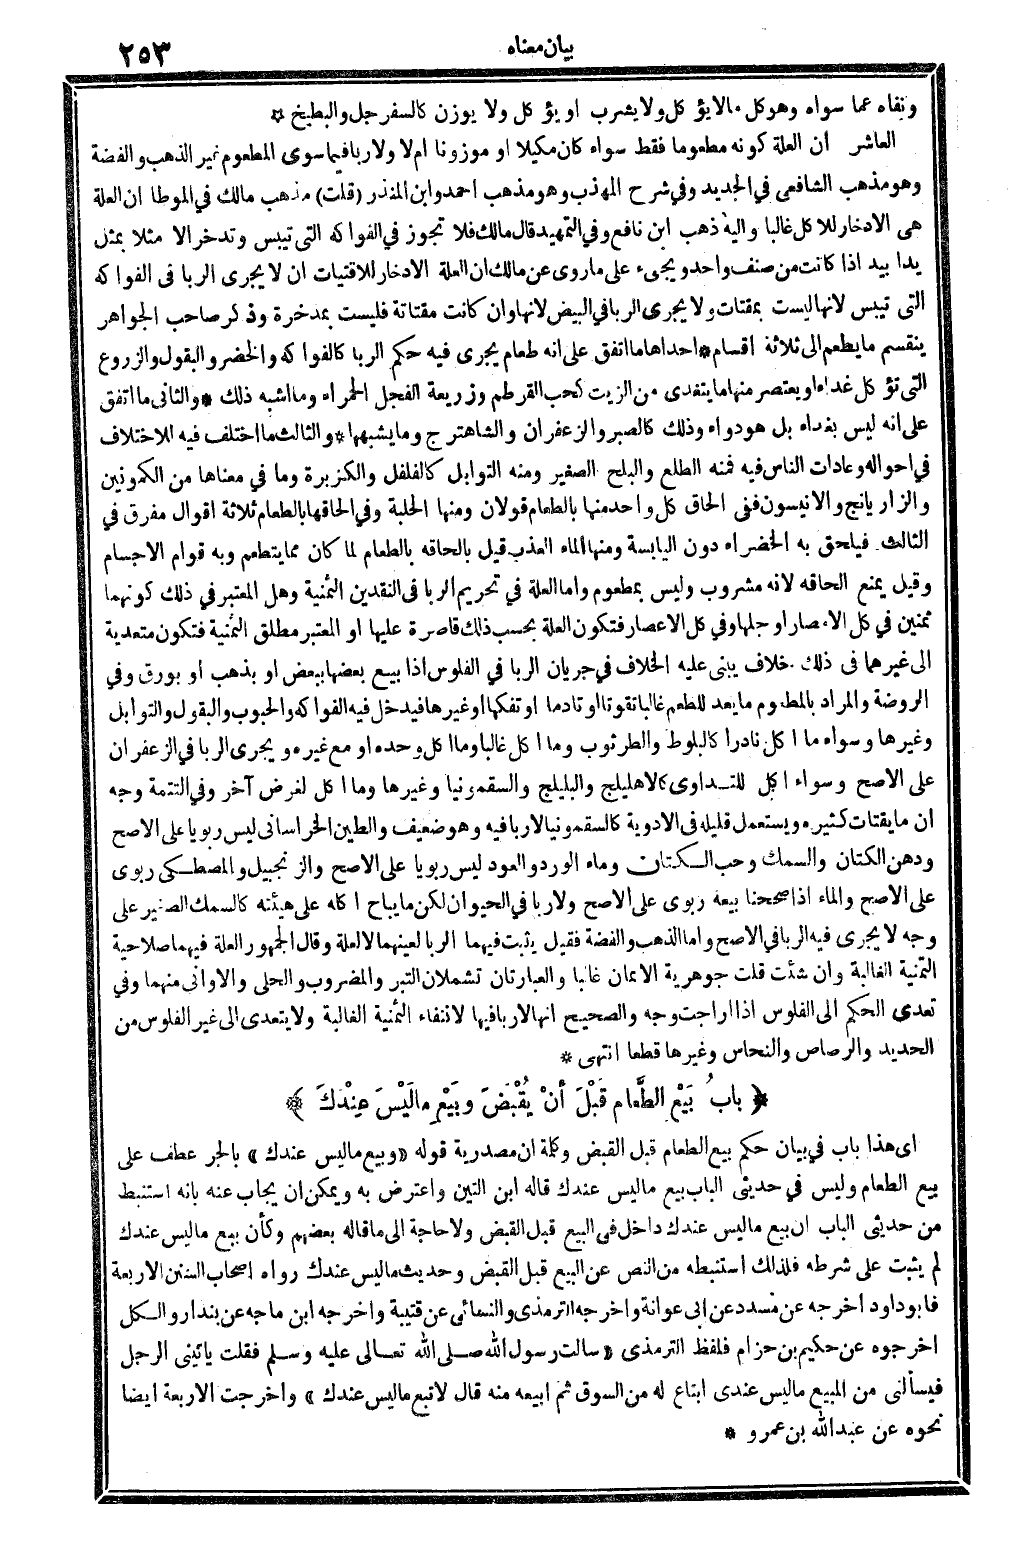 بيان معناه ٢٥٣
ونفاه عما سواه وهو كل مالا يؤكل ولا يشرب او يؤكل ولا يوزن كالسفرجل والبطيخ *
العاشر ان العلة كونه مطعوما فقط سواء كان مكيلا او موزونا ام لا ولا ربا فيما سوى المطعوم غير الذهب والفضة
وهو مذهب الشافعي في الجديد وفي شرح المهذب وهو مذهب احمد وابن المنذر (قلت) مذهب مالك في الموطا ان العلة
هى الادخار للاكل غالبا واليه ذهب ابن نافع وفي التمهيد قال مالك فلا تجوز في الفواكه التى تيبس وتدخر الا مثلا بمثل
يدا بيد اذا كانت من صنف واحد ويجىء على ماروى عن مالك ان العلة الادخار للاقتيات ان لا يجرى الربا فى الفواكه
التى تيبس لانها ليست بمقتات ولا يجرى الربا في البيض لانها وان كانت مقتاتة فليست بمدخرة وذكر صاحب الجواهر
ينقسم ما يطعم الى ثلاثة اقسام * احداها ما اتفق على انه طعام يجرى فيه حكم الربا كالفواكه والخضر والبقول والزروع
التى تؤكل غداء او يعتصر منها ما يتغدى من الزيت كحب القرطم وزريعة الفجل الحمراء وما اشبه ذلك * والثانى ما اتفق
على انه ليس بغداء بل هو دواء وذلك كالصبر والزعفران والشاهترج وما يشبهها * والثالث ما اختلف فيه للاختلاف
في احواله وعادات الناس فيه فمنه الطلع والبلح الصغير ومنه التوابل كالفلفل والكزبرة وما في معناها من الكمونين
والزاريانج والانيسون ففى الحاق كل واحد منها بالطعام قولان ومنها الحلبة وفي الحاقها بالطعام ثلاثة اقوال مفرق في
الثالث فيلحق به الخضراء دون اليابسة ومنها الماء العذب قيل بالحاقه بالطعام لما كان مما يتطعم وبه قوام الاجسام
وقيل يمنع الحاقه لانه مشروب وليس بمطعوم واما العلة في تحريم الربا فى النقدين الثمنية وهل المعتبر في ذلك كونهما
ثمنين في كل الامصار او جلها وفي كل الاعصار فتكون العلة بحسب ذلك قاصرة عليها او المعتبر مطلق الثمنية فتكون متعدية
الى غيرهما فى ذلك خلاف يبنى عليه الخلاف في جريان الربا في الفلوس اذا بيع بعضها ببعض او بذهب او بورق وفي
الروضة والمراد بالمطعوم ما يعد للطعم غالبا تقوتا او تادما او تفكها او غيرها فيدخل فيه الفواكه والحبوب والبقول والتوابل
وغيرها وسواء ما اكل نادرا كالبلوط والطرثوب وما اكل غالبا وما اكل وحده او مع غيره ويجرى الربا في الزعفران
على الاصح وسواء اكل للتداوى كالاهليلج والبليلج والسقمونيا وغيرها وما اكل لغرض آخر وفي التتمة وجه
ان ما يقتات كثيره ويستعمل قليله فى الادوية كالسقمونيا لا ربا فيه وهو ضعيف والطين الخراسانى ليس ربويا على الاصح
ودهن الكتان والسمك وحب الكتان وماء الورد والعود ليس ربويا على الاصح والزنجبيل والمصطكى ربوى
على الاصح والماء اذا صححنا بيعه ربوى على الاصح ولا ربا في الحيوان لكن ما يباح اكله على هيئته كالسمك الصغير على
وجه لا يجرى فيه الربا في الاصح واما الذهب والفضة فقيل يثبت فيهما الربا لعينهما لا لعلة وقال الجمهور العلة فيهما صلاحية
الثمنية الغالبة وان شئت قلت جوهرية الاثمان غالبا والعبارتان تشملان التبر والمضروب والحلى والاوانى منهما وفي
تعدى الحكم الى الفلوس اذا راجت وجه والصحيح انها لا ربا فيها لانتفاء الثمنية الغالبة ولا يتعدى الى غير الفلوس من
الحديد والرصاص والنحاس وغيرها قطعا انتهى *
﴿ بابُ بَيْعِ الطَّعامِ قَبْلَ أنْ يُقْبَضَ وبَيْعِ مالَيْسَ عِنْدَكَ ﴾
اى هذا باب في بيان حكم بيع الطعام قبل القبض وكلمة ان مصدرية قوله «وبيع ماليس عندك» بالجر عطف على
بيع الطعام وليس في حديثى الباب بيع ماليس عندك قاله ابن التين واعترض به ويمكن ان يجاب عنه بانه استنبط
من حديثى الباب ان بيع ماليس عندك داخل فى البيع قبل القبض ولا حاجة الى ما قاله بعضهم وكأن بيع ماليس عندك
لم يثبت على شرطه فلذلك استنبطه من النص عن البيع قبل القبض وحديث ماليس عندك رواه اصحاب السنن الاربعة
فابو داود أخرجه عن مسدد عن ابى عوانة واخرجه الترمذى والنسائى عن قتيبة واخرجه ابن ماجه عن بندار والكل
اخرجوه عن حكيم بن حزام فلفظ الترمذى «سالت رسول الله صلى الله تعالى عليه وسلم فقلت يأتينى الرجل
فيسألنى من المبيع ماليس عندى ابتاع له من السوق ثم ابيعه منه قال لا تبع ماليس عندك» واخرجت الاربعة ايضا
نحوه عن عبد الله بن عمرو *